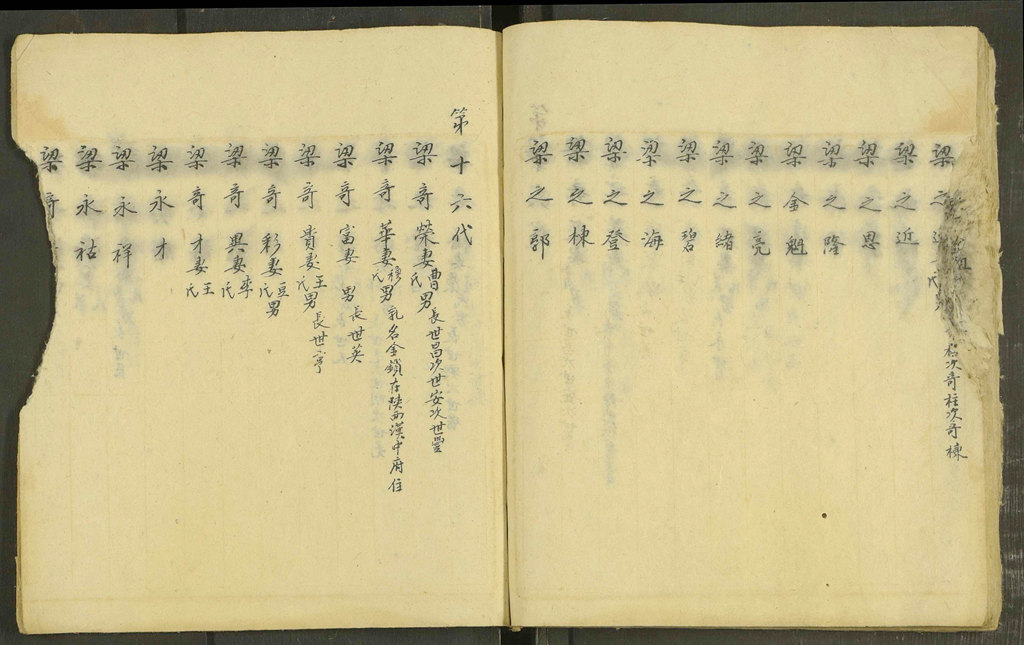 梁之 氏男 次奇柱次奇棟
梁之近
梁之恩
梁之隆
梁金魁
梁之亮
梁之緒
梁之碧
梁之海
梁之登
梁之棟
梁之郭
第十六代
梁奇榮妻曹氏男長世昌次世安次世豐
梁奇華妻穆氏男乳名金鎖在陝西漢中府住
梁奇富妻 男長世英
梁奇貴妻王氏男長世亨
梁奇彩妻豆氏男
梁奇興妻李氏
梁奇才妻王氏
梁永才
梁永祥
梁永祜
梁奇